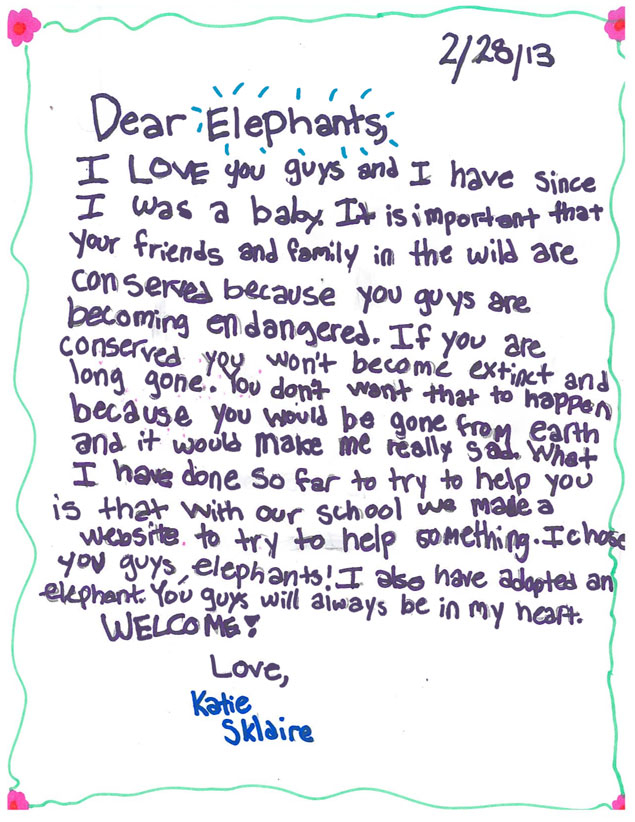 2/28/13
Dear Elephants,
I LOVE you guys and I have since
I was a baby. It is important that
your friends and family in the wild are
conserved because you guys are
becoming endangered. If you are
conserved you won't become extinct and
long gone. You don't want that to happen
because you would be gone from earth
and it would make me really sad. What
I have done so far to try to help you
is that with our school we made a
website to try to help something. I chose
you guys, elephants! I also have adopted an
elephant. You guys will always be in my heart.
WELCOME!
Love,
Katie
Sklaire